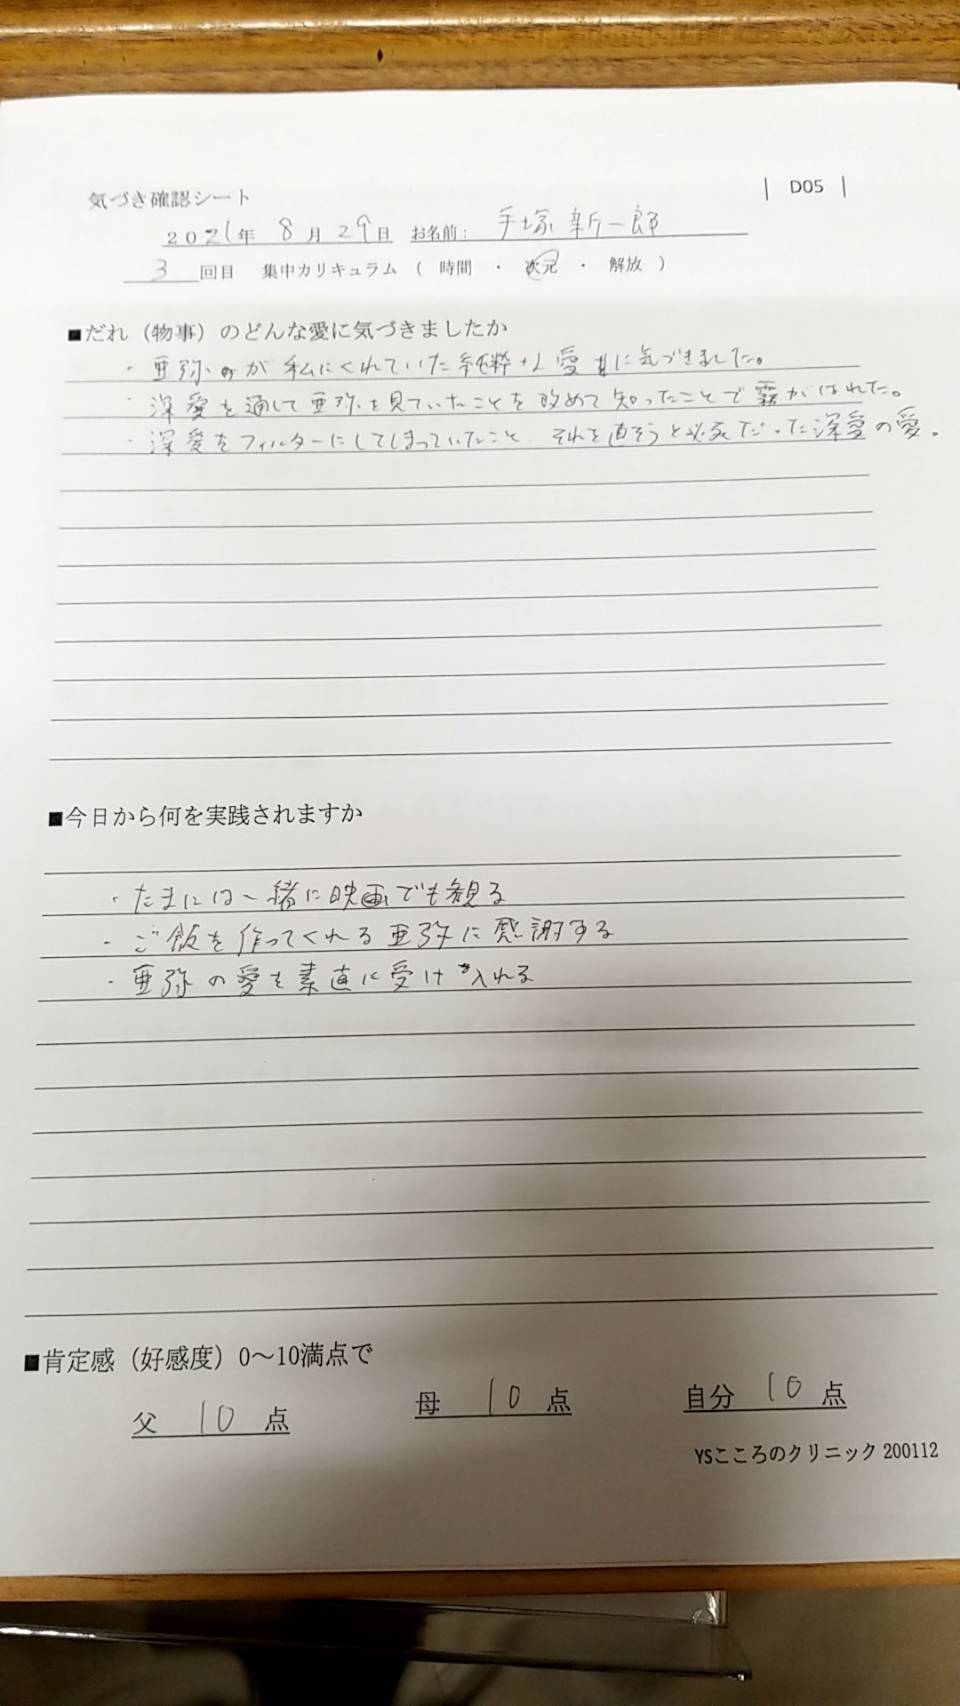 | D05 |
気づき確認シート
2021年 8月29日 お名前: 手塚新一郎
3回目 集中カリキュラム ( 時間 ・ 次元 ・ 解放 )
■だれ（物事）のどんな愛に気づきましたか
・亜弥が私にくれていた純粋な愛に気づきました。
・深愛を通して亜弥を見ていたことを改めて知ったことで霧がはれた。
・深愛をフィルターにしてしまっていたこと、それを直そうと必死だった深愛の愛。
■今日から何を実践されますか
・たまには一緒に映画でも観る
・ご飯を作ってくれる亜弥に感謝する
・亜弥の愛を素直に受け入れる
■肯定感（好感度）0～10満点で
父 10 点 母 10 点 自分 10 点
YSこころのクリニック 200112